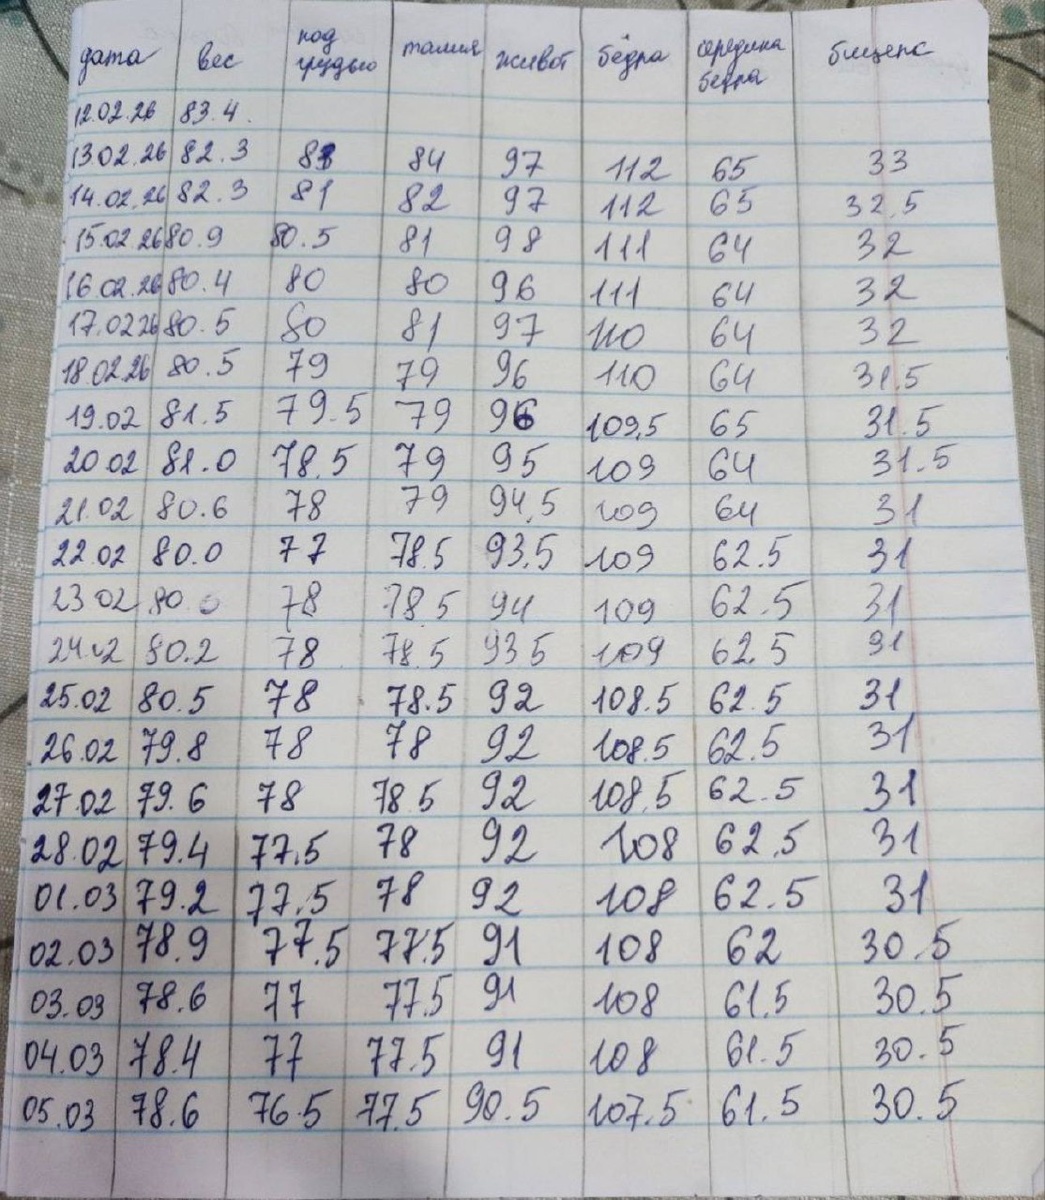 дата вес под грудью талия живот бёдра середина бедра бицепс
12.02.26 83.4.
13 02.26 82.3 84 97 112 65 33
14.02.26 82.3 81 82 97 112 65 32.5
15.02.26 80.9 80.5 81 98 111 64 32
16.02.26 80.4 80 80 96 111 64 32
17.02 26 80.5 80 81 97 110 64 32
18.02.26 80.5 79 79 96 110 64 31.5
19.02 81.5 79.5 79 96 109,5 65 31.5
20 02 81.0 78.5 79 95 109 64 31.5
21.02 80.6 78 79 94,5 109 64 31
22.02 80.0 77 78.5 93,5 109 62.5 31
23 02 80.0 78 78 5 94 109 62.5 31
80.2 78 78.5 93 5 109 62.5 31
25.02 80.5 78 78.5 92 108.5 62.5 31
26.02 79.8 78 78 92 108.5 62.5 31
27.02 79.6 78 78 5 92 108,5 62.5 31
28.02 79.4 77.5 78 92 108 62,5 31
01.03 79.2 77.5 78 92 108 62.5 31
02.03 78.9 77.5 77.5 91 108 62 30.5
03.03 78.6 77 77.5 91 108 61.5 30.5
04.03 78.4 77 77.5 91 108 61.5 30.5
05.03 78.6 76.5 77.5 90.5 107.5 61.5 30.5